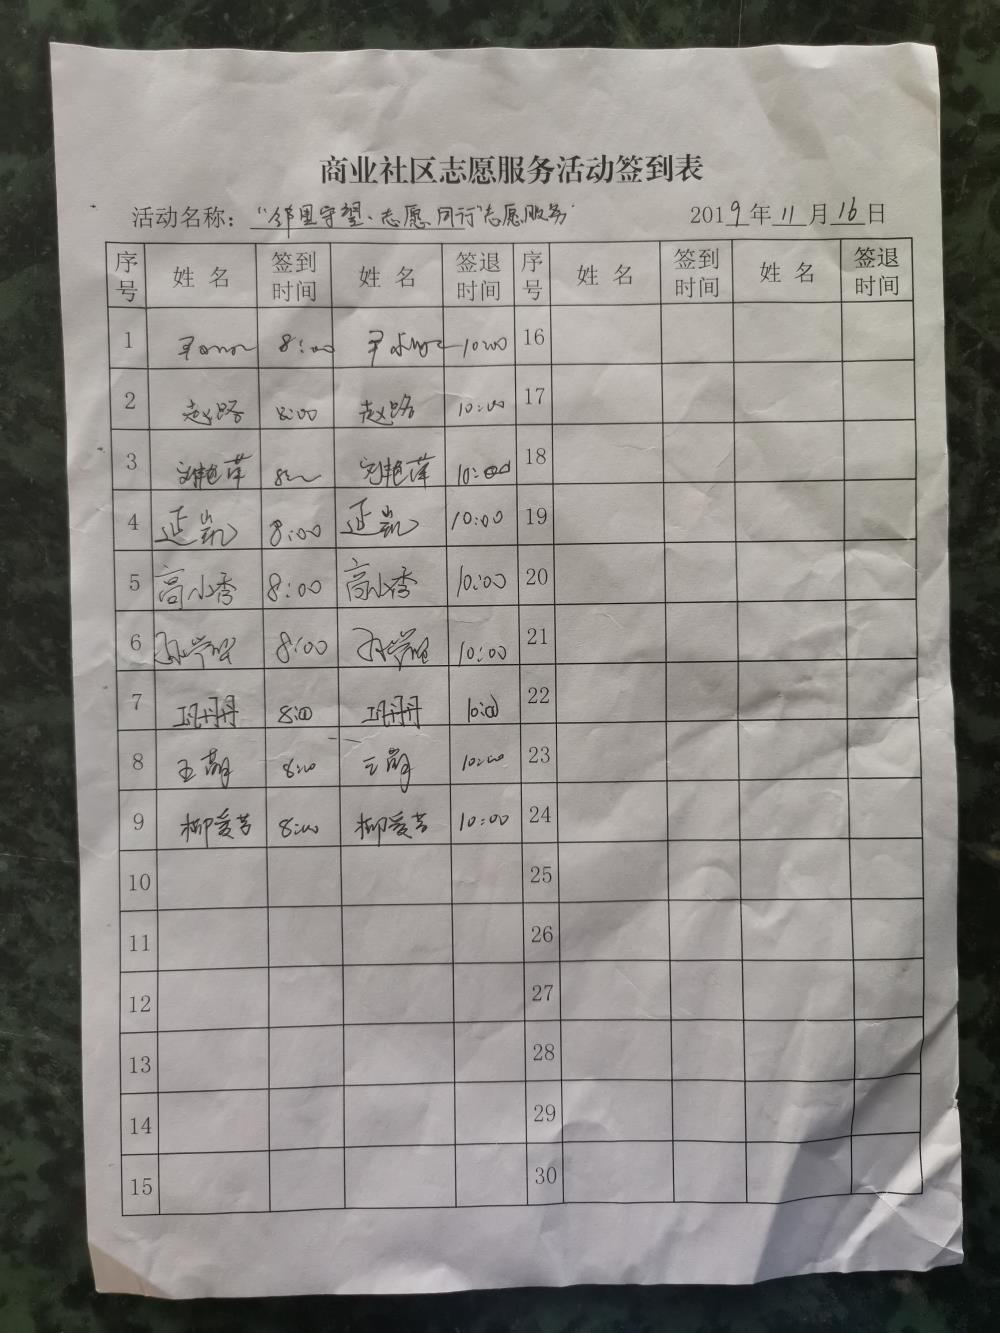 商业社区志愿服务活动签到表
活动名称：“邻里守望、志愿同行”志愿服务 2019年11月16日
序号 姓名 签到时间 姓名 签退时间 序号 姓名 签到时间 姓名 签退时间
1 8:00 10:00 16
2 赵路 8:00 赵路 10:00 17
3 刘艳萍 刘艳萍 10:00 18
4 延凯 8:00 延凯 10:00 19
5 高小秀 8:00 高小秀 10:00 20
6 8:00 10:00 21
7 巩丹丹 8:00 巩丹丹 10:00 22
8 王萌 8:00 王萌 10:00 23
9 柳爱芳 8:00 柳爱芳 10:00 24
10 25
11 26
12 27
13 28
14 29
15 30